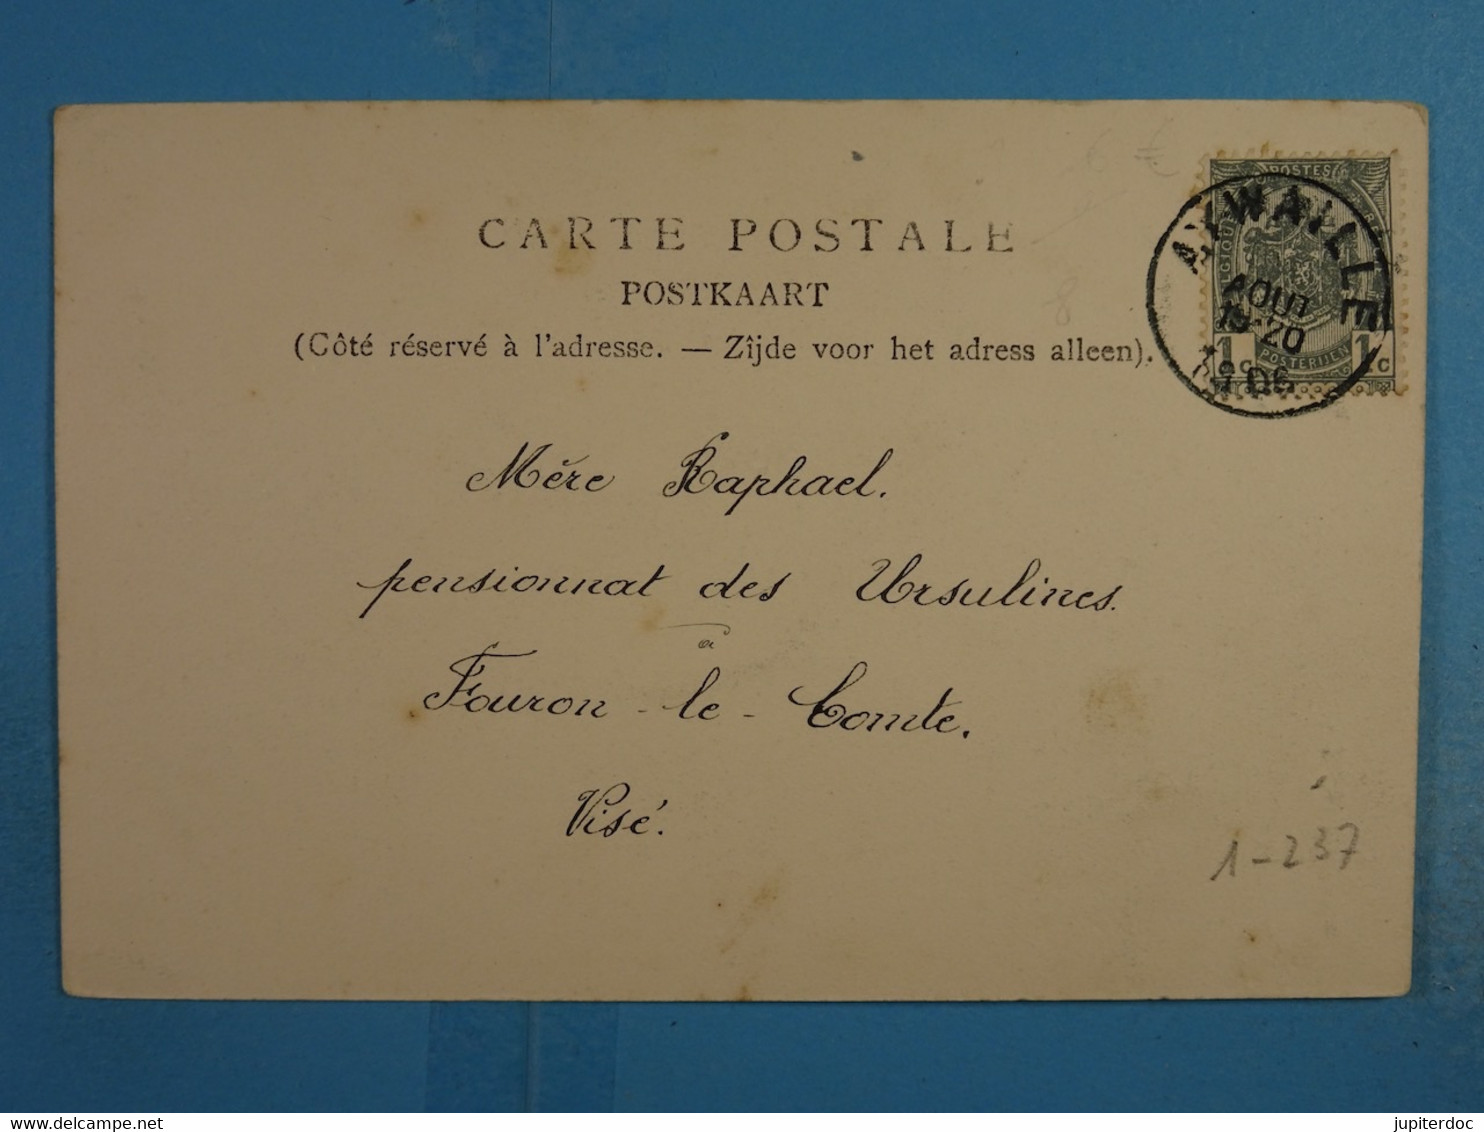 POSTES
CARTE POSTALE
AYWAILLE
POSTKAART
AOUT
19-20
(Côté réservé à l'adresse. — Zîjde voor het adress alleen).
1c POSTERIJEN 1c
1906
Mère Raphael.
pensionnat des Ursulines.
à
Fouron - le - Comte.
Visé.
1-237
jupiterdoc